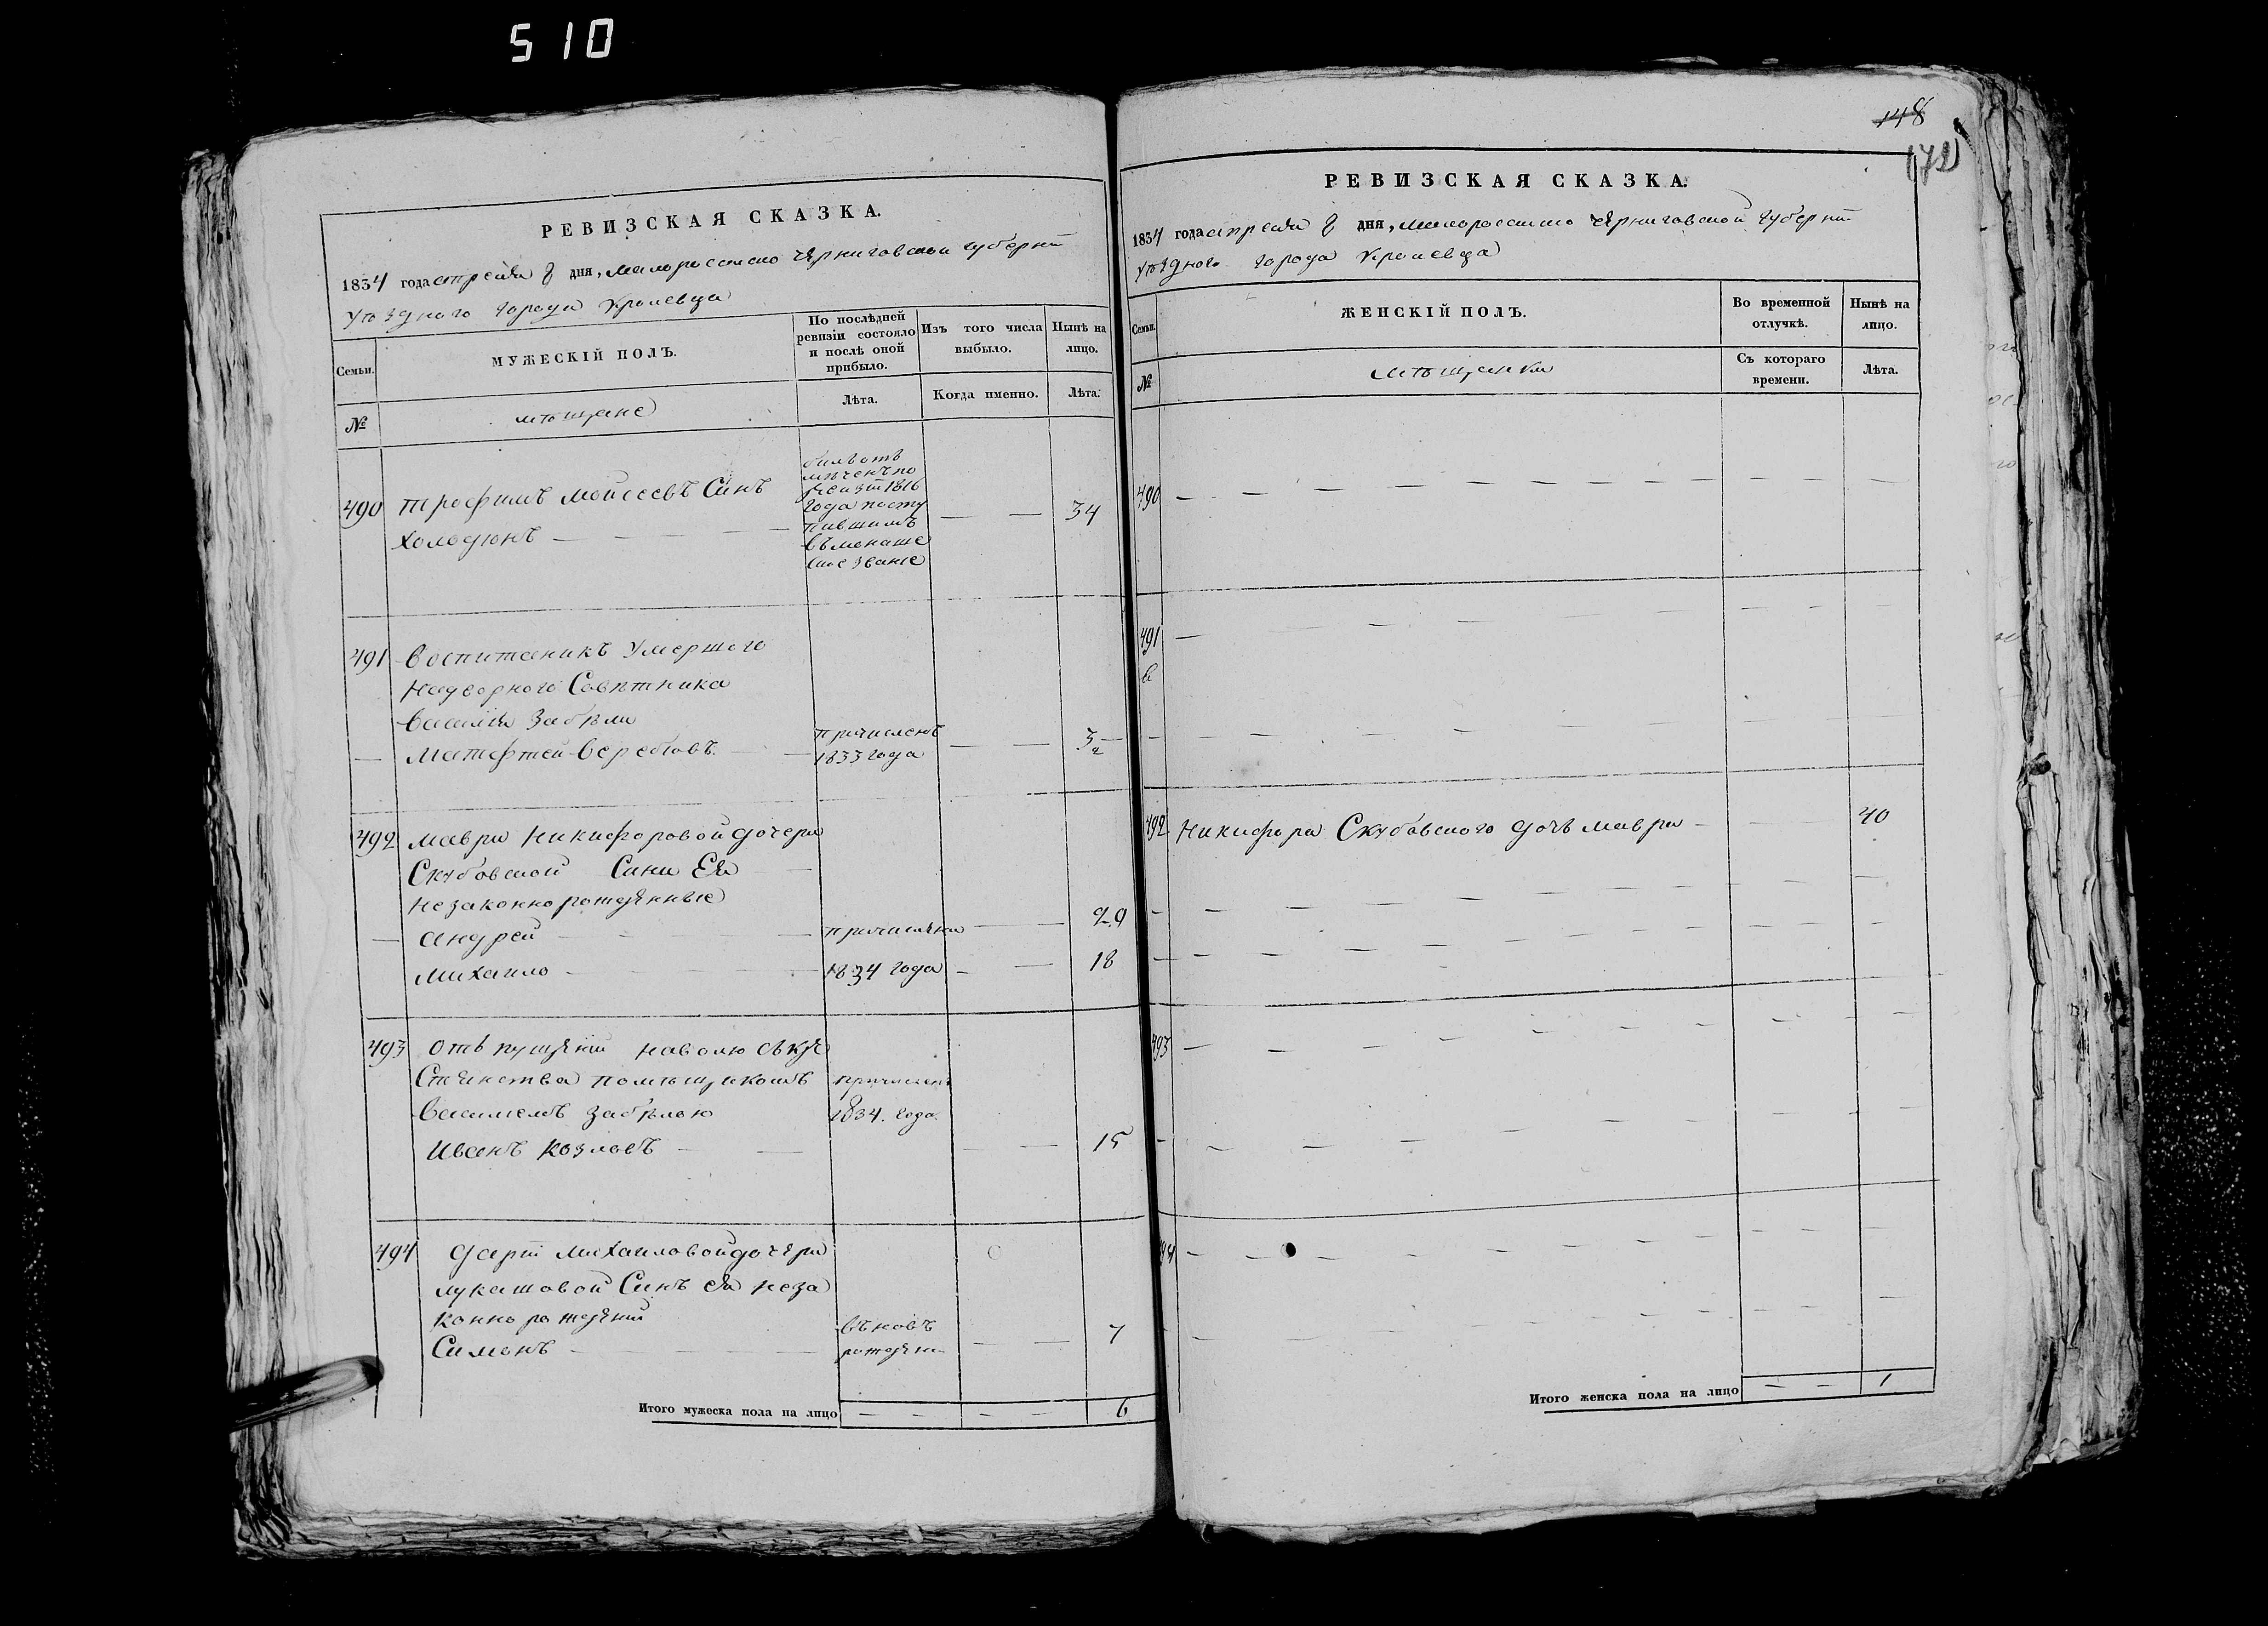 510
РЕВИЗСКАЯ СКАЗКА.
1834 года апреля 8 дня, малороссийско Черниговской губерніи
уѣзднаго города Кролевца
Семьи.
МУЖЕСКІЙ ПОЛЪ.
По послѣдней ревизіи состояло и послѣ оной прибыло.
Изъ того числа выбыло.
Нынѣ на лицо.
№
мѣщане
Лѣта.
Когда именно.
Лѣта.
490
Трофимъ Моисеевъ Синъ
Холодюнъ
1816
года посту
пившимъ
званіе
34
491
Воспитаникъ умершого
Надворного Совѣтника
Василія Забѣли
Матфтей Веребіовъ
причисленъ
1833 года
3
492
Маври Никифоровой дочери
Скубовской Сини Ея
незаконнорожденные
Андрей
причислени
29
Михаило
1834 года
18
493
Отъпущений наволю
помѣщикомъ
Василіемъ Забѣлою
Иванъ Козловъ
причисленъ
1834. года.
15
494
Дарии Михаиловой дочери
Лукашовой Синъ ея неза
конно рожденій
Симонъ
вьновъ
рожден
7
Итого мужеска пола на лицо
6
148
РЕВИЗСКАЯ СКАЗКА.
1834 года апреля 8 дня, малороссийско Черниговской губерніи
уѣзднаго города Кролевца
Семьи.
ЖЕНСКІЙ ПОЛЪ.
Во временной отлучкѣ.
Нынѣ на лицо.
№
мѣщанки
Съ котораго времени.
Лѣта.
490
491
492
Никифора Скубовского дочъ Мавра
40
493
494
Итого женска пола на лицо
1